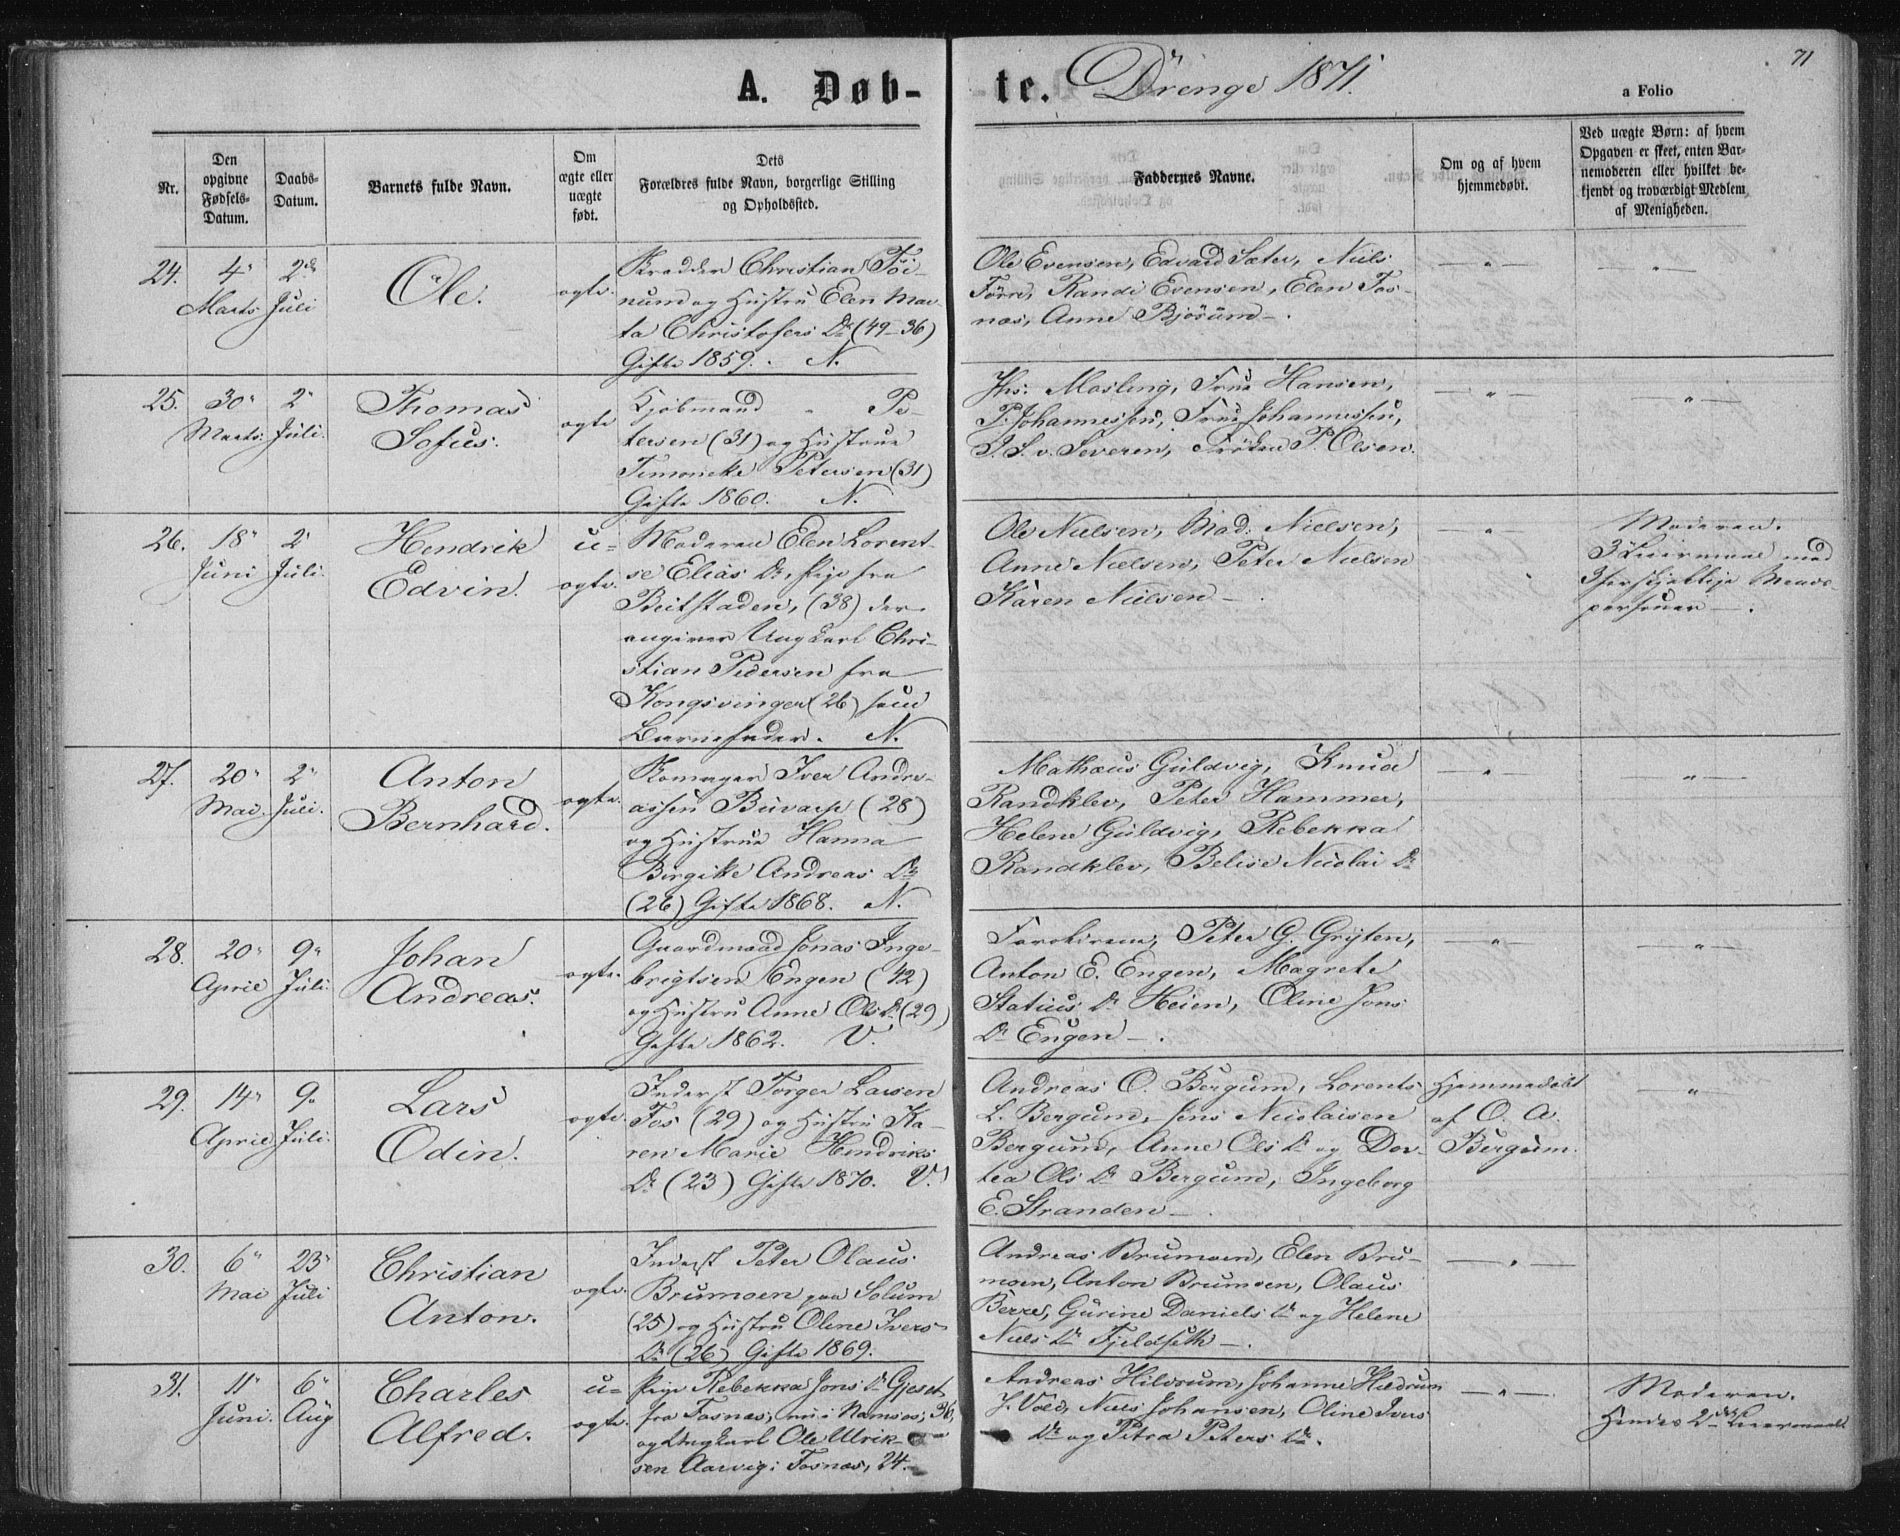 A. Døb-
te. Drenge 1871.
71
a Folio
Nr.
Den
opgivne
Fødsels-
Datum.
Daabs-
Datum.
Barnets fulde Navn.
Om
ægte eller
uægte
født.
Dets
Forældres fulde Navn, borgerlige Stilling
og Opholdssted.
Faddernes Navne.
Om og af hvem
hjemmedøbt.
Ved uægte Børn: af hvem
Opgaven er skeet, enten Bar-
nemoderen eller hvilket be-
kjendt og troværdigt Medlem
af Menigheden.
24.
4"
Marts
2den
Juli
Ole.
ægte.
Skrædder Christian
og Hustru Elen Mar-
ta Christofers Dr (49-36)
Gifte 1859. N.
Ole Evensen, Edvard Sæter, Niels
Randi Evensen, Elen Fos-
næs, Anne Bjørum.
— " —
— " —
25.
30"
Marts.
2"
Juli.
Thomas
Sofus.
ægte
Kjøbmand " Pe-
tersen (31) og Hustrue
Petersen (31)
Gifte 1860. N.
Jhs. Mosling, Frue Hansen,
P. Johannessen, Frue Johannessen,
v. Severen, Frøken P. Olsen.
— " —
— " —
26.
18"
Juni
2"
Juli.
Hendrik
Edvin.
u=
ægte.
Moderen Elen Lorent-
se Elias Dr, Pige fra
Beitstaden, (38) der
angiver Ungkarl Chri-
stian Pedersen fra
Kongsvinger (26) som
Barnefader. N.
Ole Nielsen, Mad. Nielsen,
Anne Nielsen, Peter Nielsen
Karen Nielsen —.
— "
Moderen.
3 Leiermaal med
3 forskjellige Mands-
personer —.
27.
20"
Mai.
2"
Juli.
Anton
Bernhard.
ægte.
Skomager Iver Andre-
assen Buvarp (28)
og Hustrue Hanna
Birgitte Andreas Dr
(26) Gifte 1868. N.
Mathæus Guldvig, Knud
Randklev, Peter Hammer,
Helene Guldvig, Rebekka
Randklev, Belise Nicolai Dr
— " —
— " —
28.
20"
April
9"
Juli.
Johan
Andreas.
ægte.
Gaardmand Jonas Inge-
brigtsen Engen (42)
og Hustru Anne Ols Dr (29)
Gifte 1862. V.
Forældrene, Peter G. Gryten,
Anton E. Engen, Magrete
Statius Dr Heien, Oline Jons
Dr Engen —.
— " —
— " —
29.
14"
April
9"
Juli.
Lars
Odin.
ægte.
Inderst Torger Larsen
Fos (29) og Hustru Ka-
ren Marie Hendriks
Dr (23) Gifte 1870. V.
Andreas O. Bergum, Lorents
L. Bergum, Jens Nicolaisen
Bergum, Anne Ols Dr og Dor-
tea Ols Dr Bergum, Ingeborg
E. Stranden —.
Hjemmedøbt
af O. A.
Bergum.
"
30.
6"
Mai
23"
Juli
Christian
Anton.
ægte.
Inderst Peter Olaus
Brumoen paa Solum
(25) og Hustru Oline Ivers
Dr (26) Gifte 1869.
Andreas Brumoen, Elen Bru-
moen, Anton Brumoen, Olaus
Berre, Gurine Daniels Dr og Helene
Niels Dr Fjeldseth —.
— " —
31.
11"
Juni.
6"
Aug
Charles
Alfred.
u=
ægte.
Pige Rebekka Jons Dr Gjeset
fra Fosnæs, nu i Namsos, 36,
og Ungkarl Ole Ulrik-
sen Aarvig i Fosnæs, 24.
Andreas Hildrum, Johanne Hildrum
J. Vold, Niels Johansen, Oline Ivers
Dr og Petra Peters Dr.
— " —
Moderen.
Hendes 2det Leiermaal